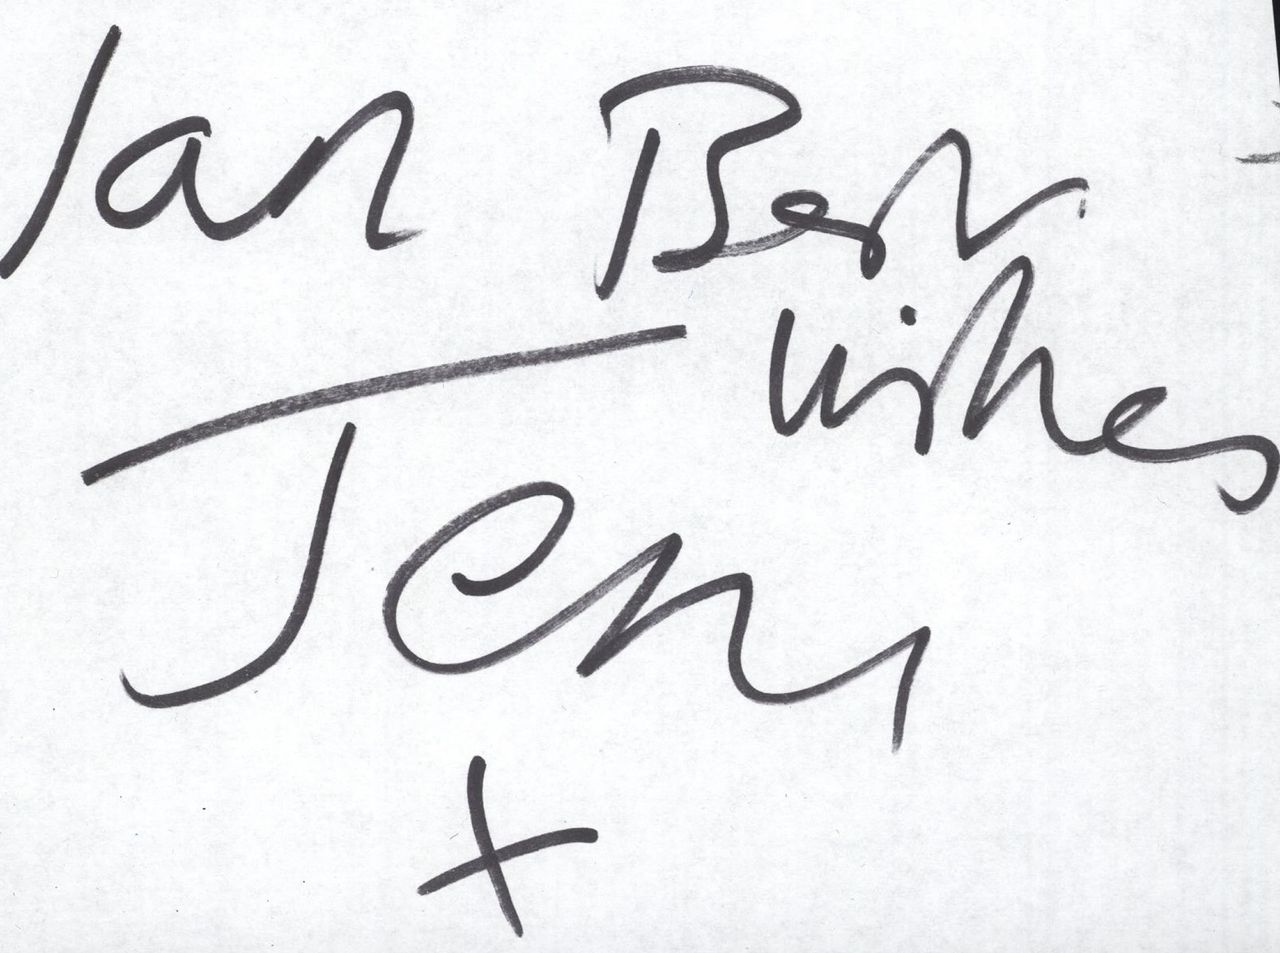 Ian Best
Wishes
Jeni
x